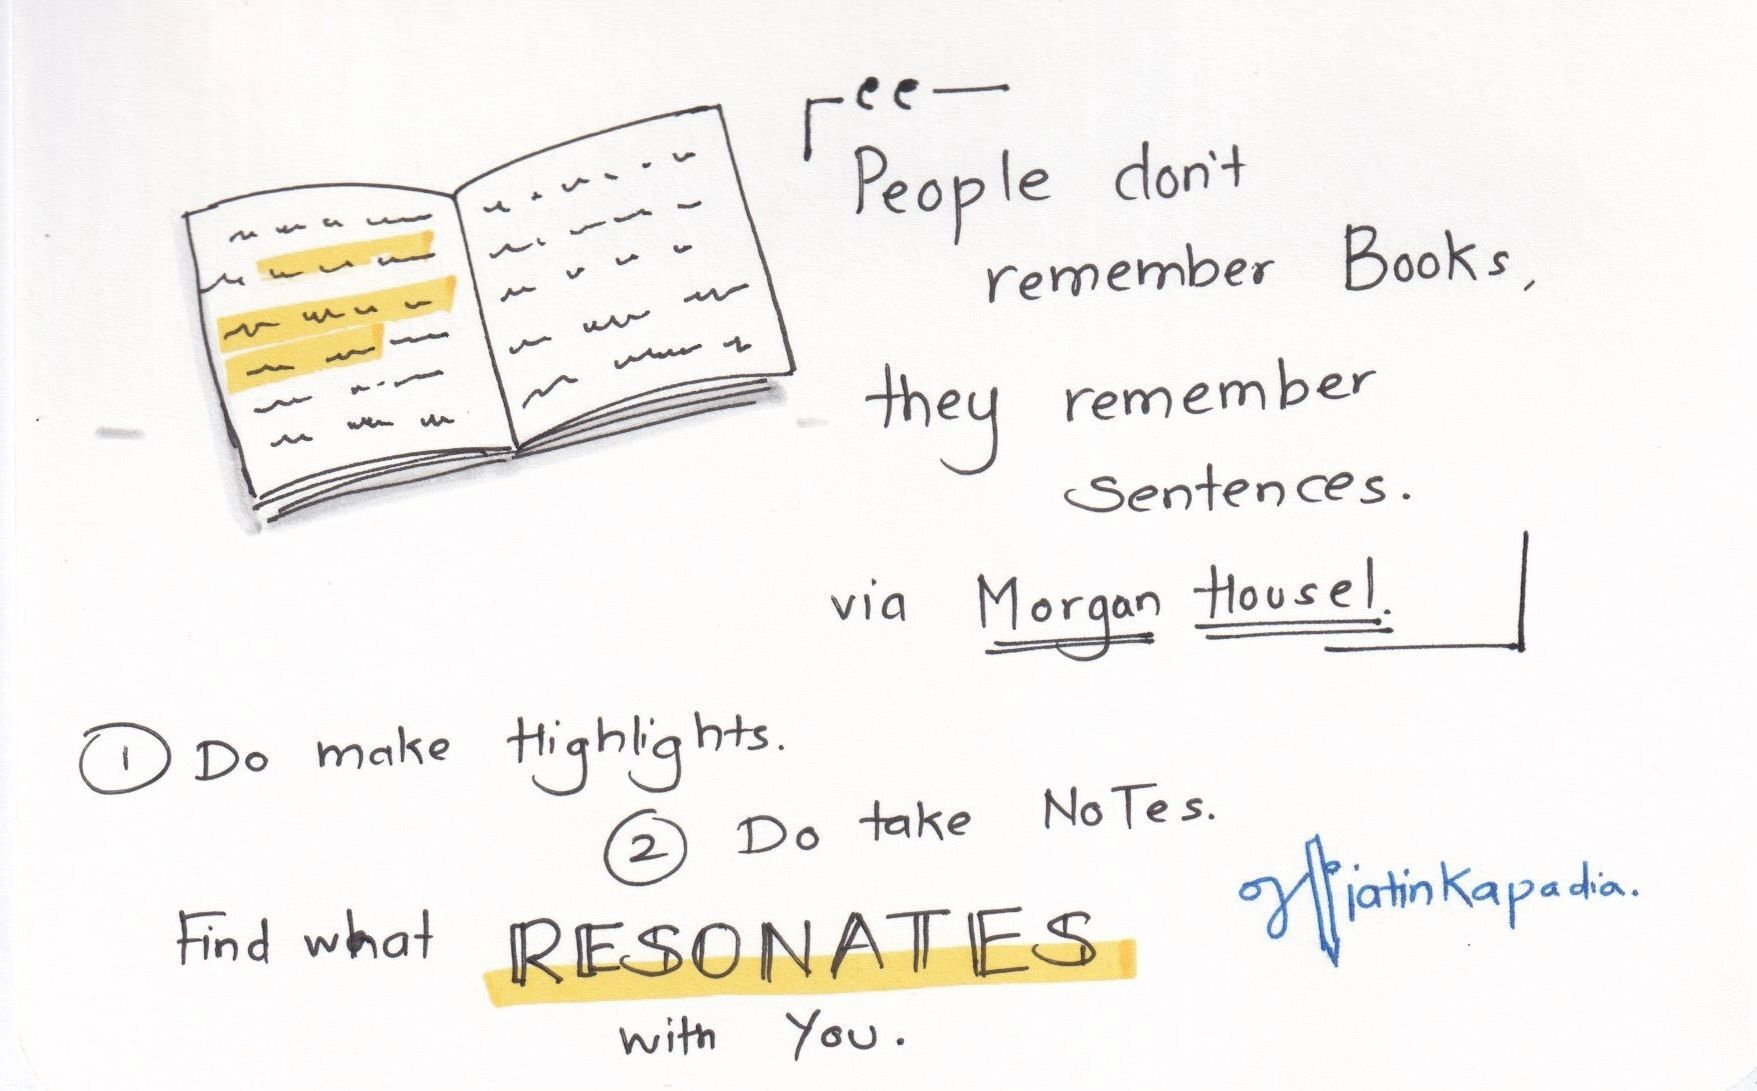 “
People don't
remember Books,
they remember
sentences.
via Morgan Housel.
① Do make Highlights.
② Do take NoTes.
Find what RESONATES
with You.
jatinkapadia.